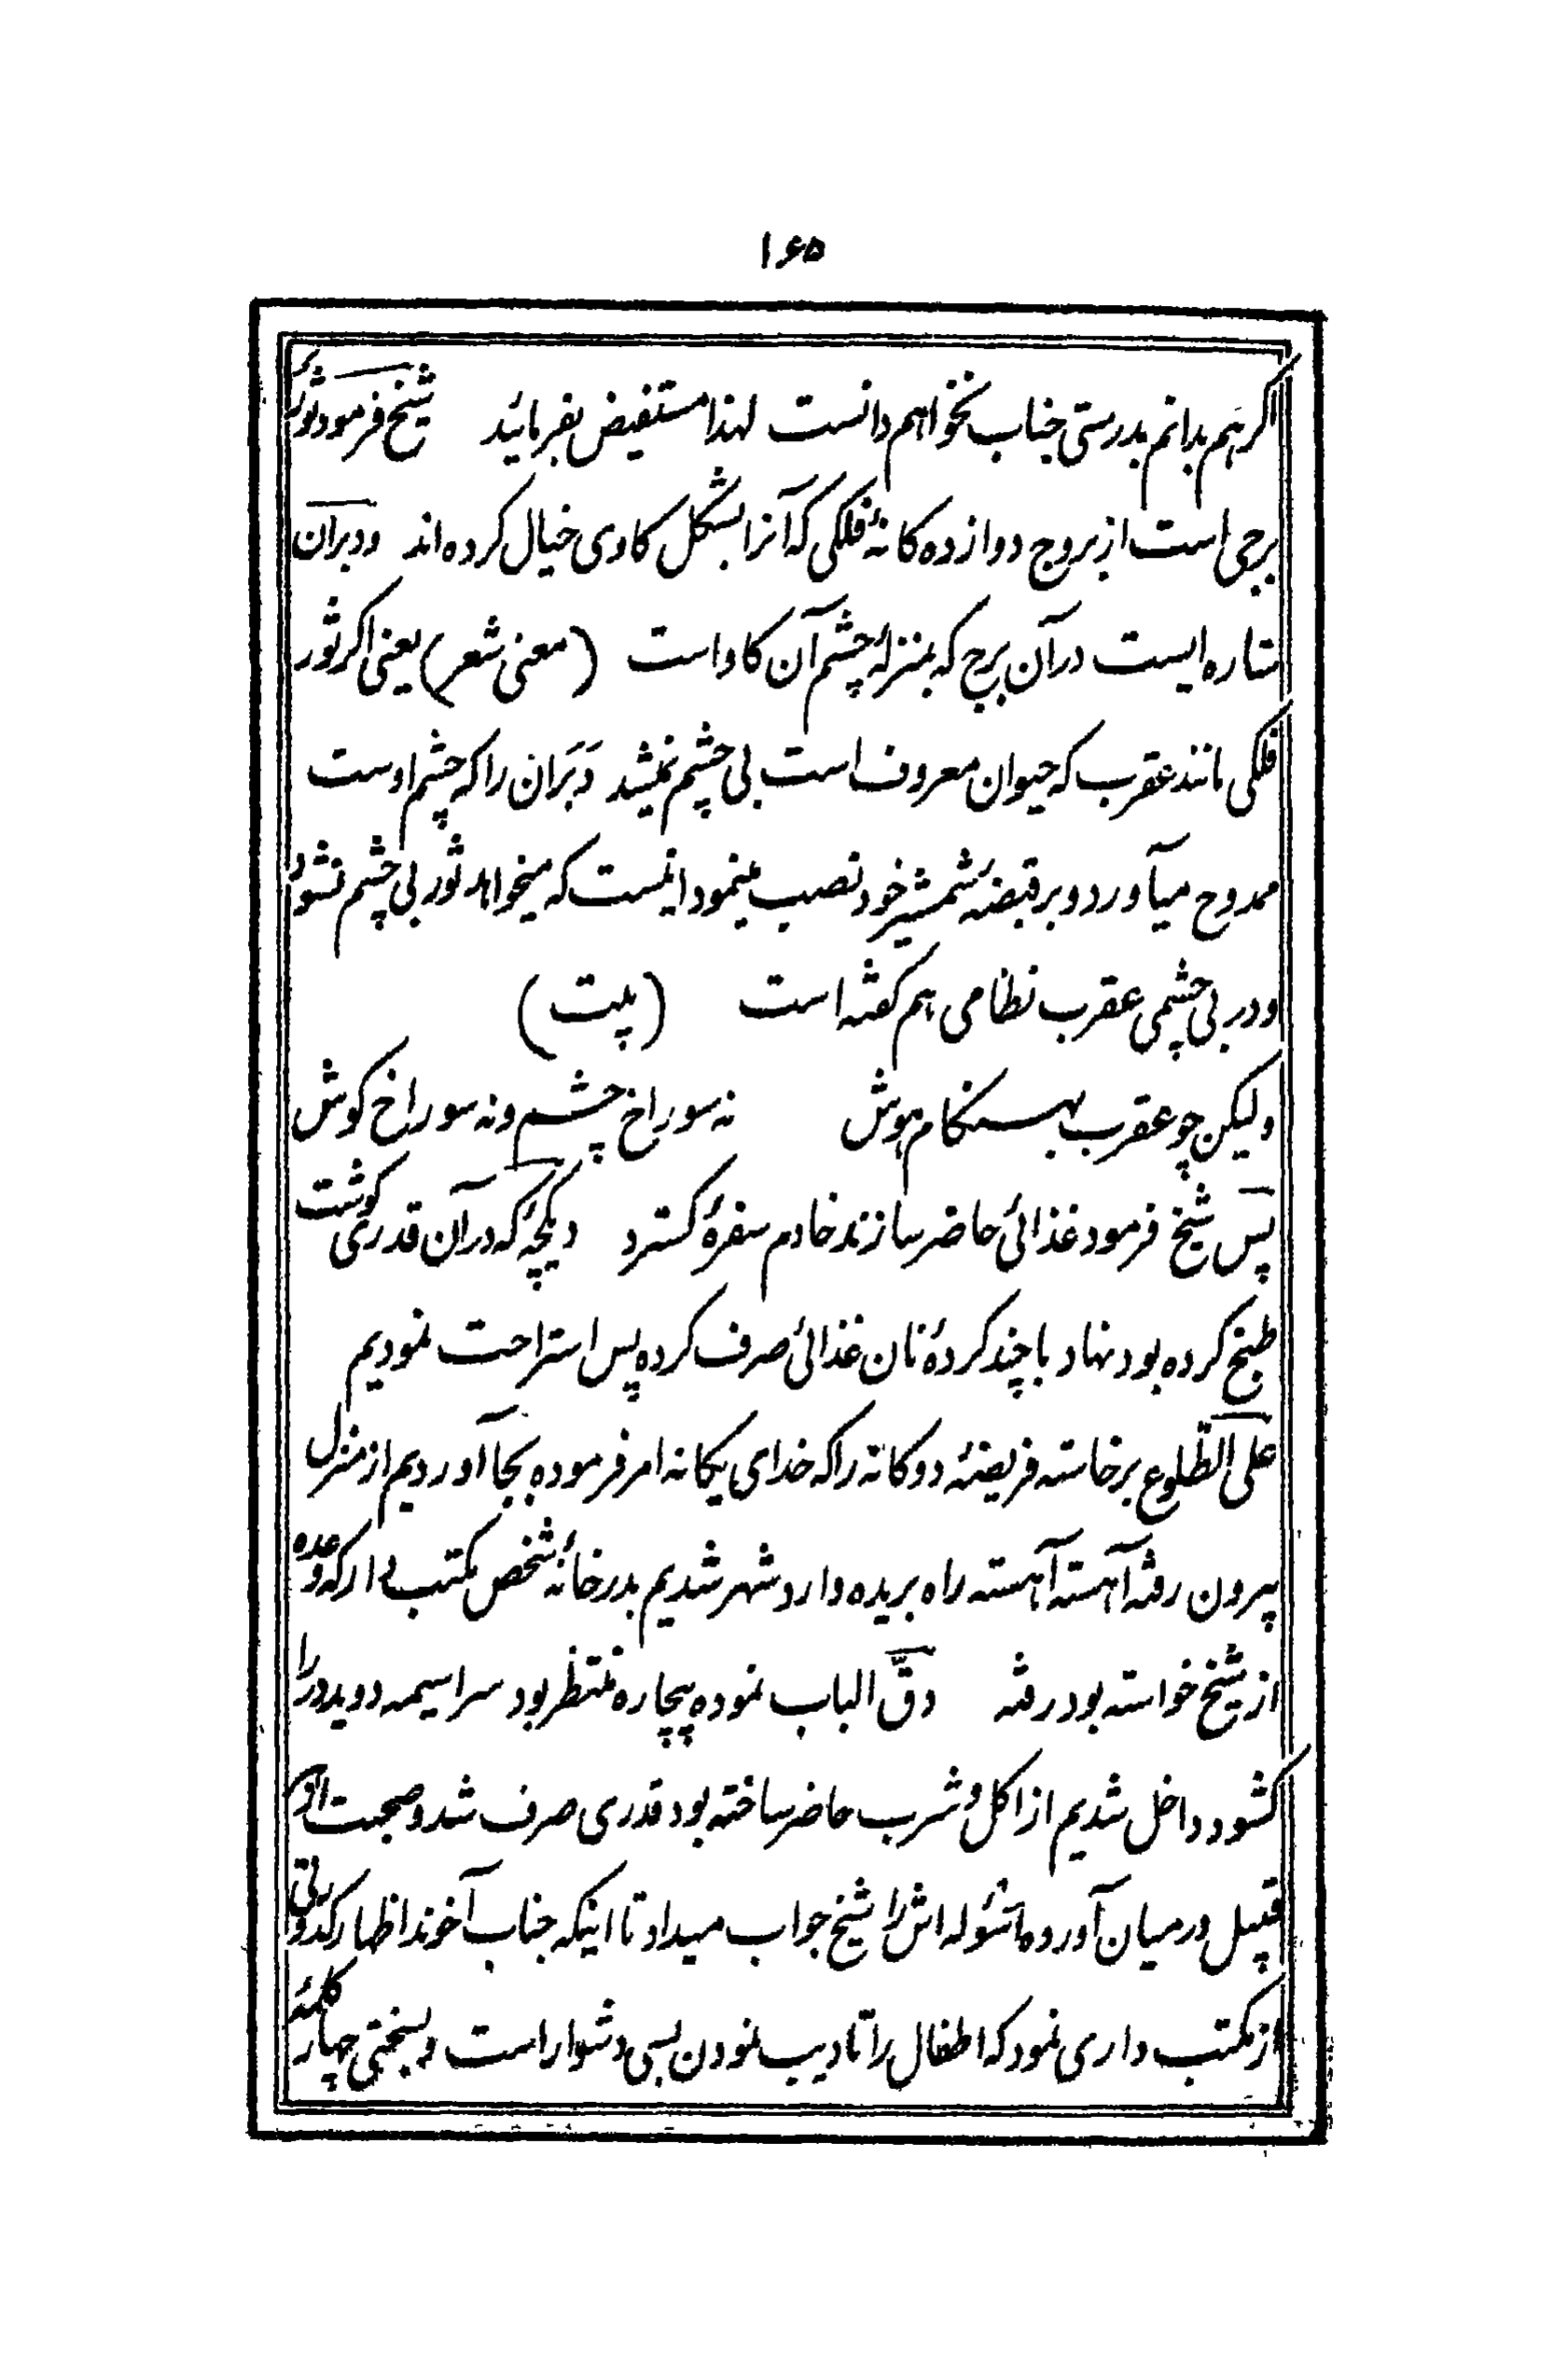 ۱۶۵
اگر هم بدانم بدرستی جناب نخواهم دانست لهذا مستفیض بفرمائید شیخ فرمود ثور
برجی است از بروج دوازده کانهٔ فلکی که آنرا بشکل کاوی خیال کرده اند و دبران
ستاره ایست در آن برج که بمنزلهٔ چشم آن کاو است (معنی شعر) یعنی اکر ثور
فلکی مانند عقرب که حیوان معروف است بی چشم نمیشد دَبَران را که چشم اوست
ممدوح میآورد و بر قبضهٔ شمشیر خود نصب مینمود اینست که میخواهد ثور بی چشم نشود
و در بی چشمی عقرب نظامی هم کفته است (بیت)
ولیکن چو عقرب بهنکام هوش نه سوراخ چشم و نه سوراخ کوش
پس شیخ فرمود غذائی حاضر سازند خادم سفرهٔ کسترد دیکچهٔ که در آن قدری کوشت
طبخ کرده بود نهاد با چند کردهٔ نان غذائی صرف کرده پس استراحت نمودیم
علی الطّلوع برخاسته فریضهٔ دوکانه را که خدای یکانه امر فرموده بجا آوردیم از منزل
بیرون رفته آهسته آهسته راه بریده وارد شهر شدیم بدر خانهٔ شخص مکتب دار که وعده
از شیخ خواسته بود رفته دقّ الباب نموده بیچاره منتظر بود سراسیمه دوید در را
کشود داخل شدیم از اکل و شرب حاضر ساخته بود قدری صرف شد و صحبت از هر
قبیل در میان آورده مسئوله اش را شیخ جواب میداد تا اینکه جناب آخوند اظهار کدورتی
از مکتب داری نمود که اطفال را تادیب نمودن بسی دشوار است و بسختی چهار کلمهٔ